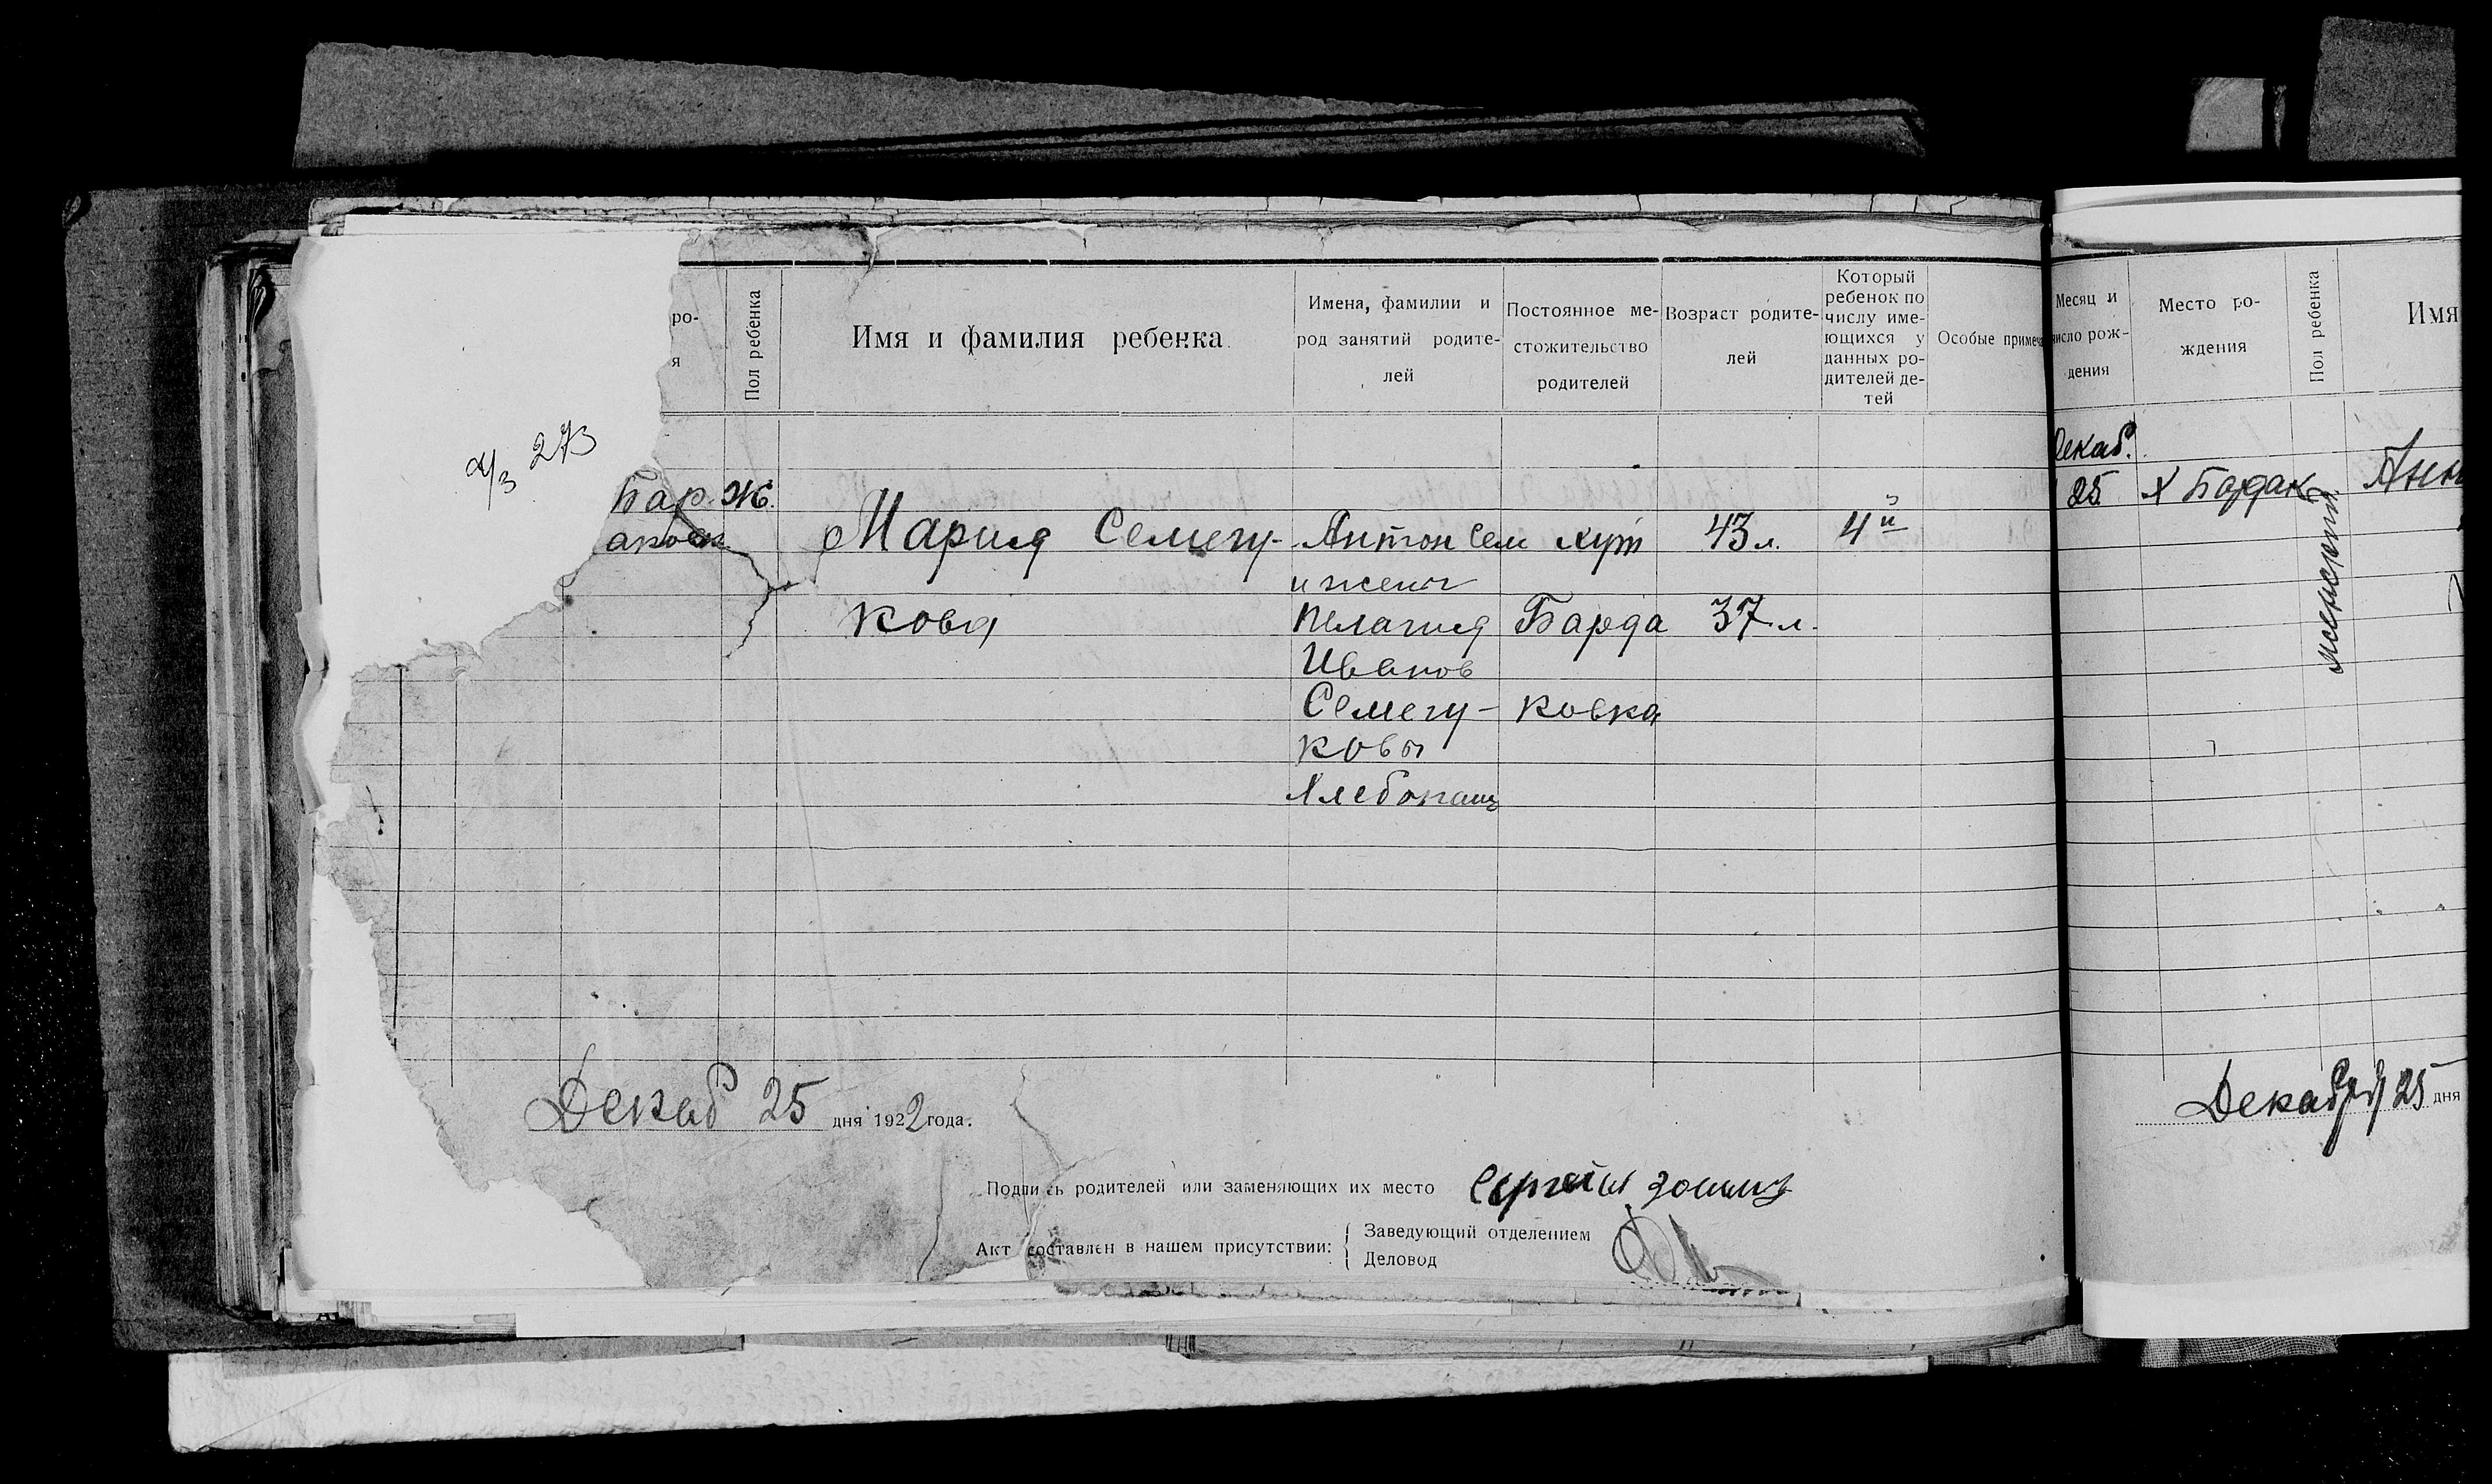 ро-
я
Пол ребенка
Имя и фамилия ребенка.
Имена, фамилии и
род занятий родите-
лей
Постоянное ме-
стожительство
родителей
Возраст родите-
лей
Который
ребенок по
числу име-
ющихся у
данных ро-
дителей де-
тей
Особые примеча
273
Бар. Ж.
Мария Семегу- Антон Сем хут 43 л. 4й
и жены
кова Пелагия Барда 37 л.
Иванов
Семегу- ковка
ковы
Хлебопаш
Декаб 25 дня 1922 года.
Подпись родителей или заменяющих их место Сергей
Акт составлен в нашем присутствии:
Заведующий отделением
Деловод
Месяц и
число рож-
дения
Место ро-
ждения
Пол ребенка
Имя
Декаб.
25 Х Бардак женский Анн
Декабря 25 дня